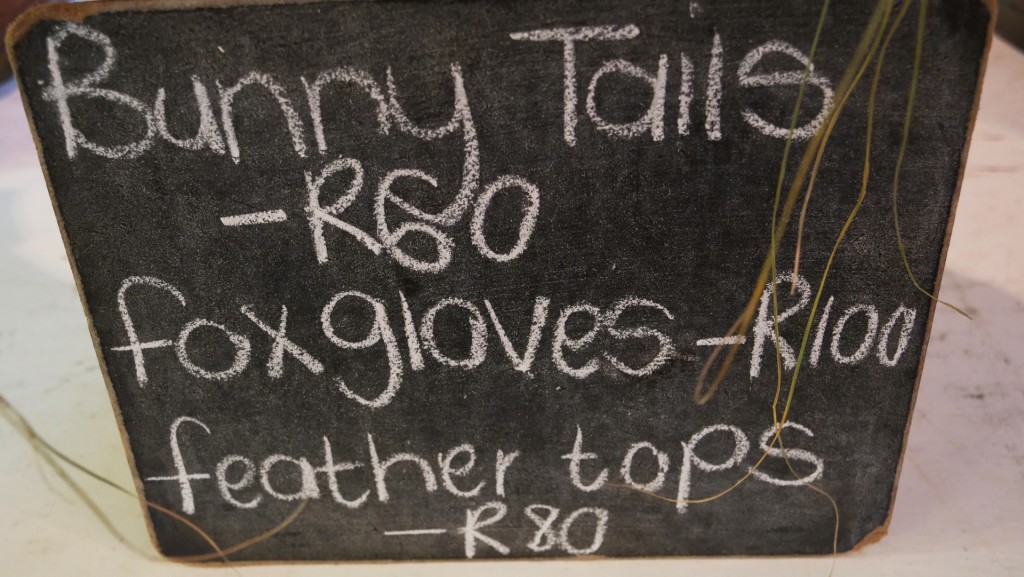 Bunny Tails
-R60
foxgloves -R100
feather tops
-R80